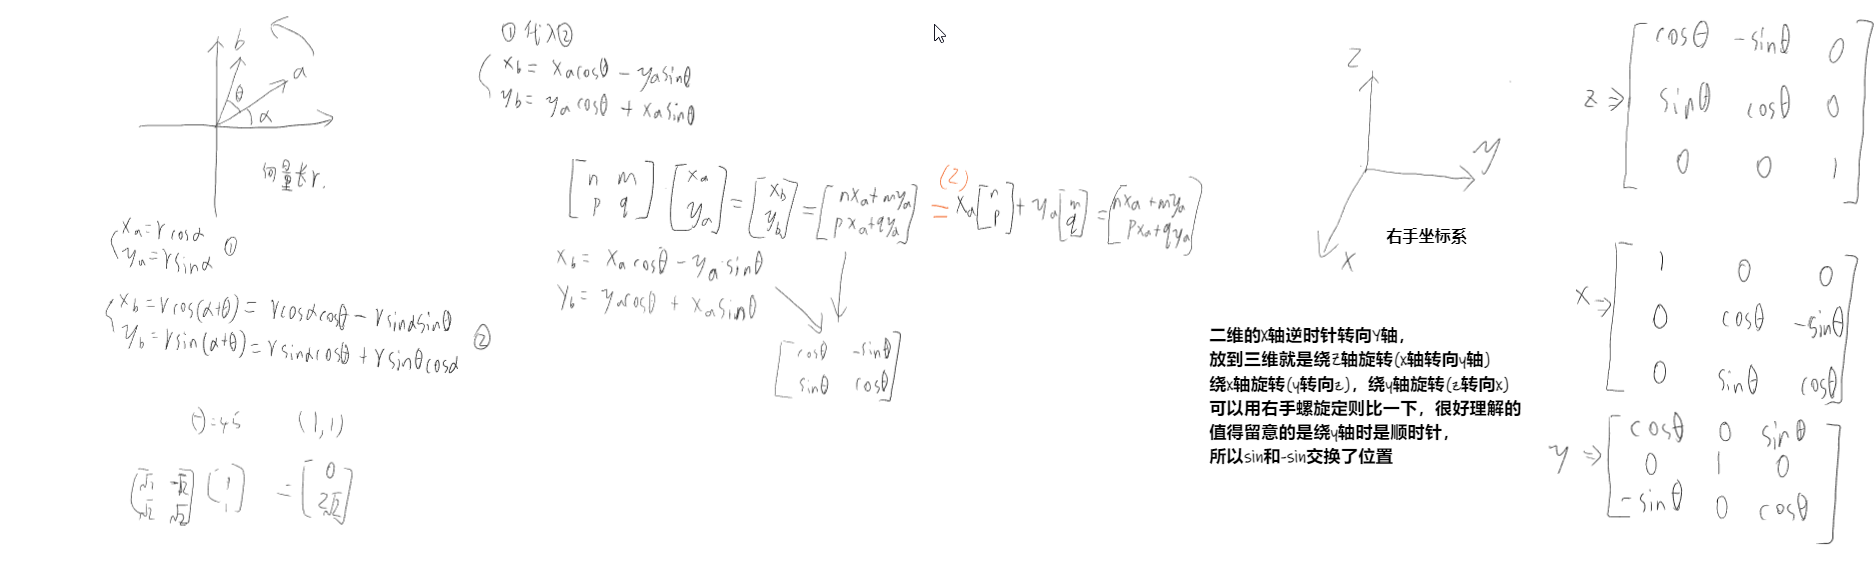 b
a
θ
α
向量长r.
xₐ=rcosα
yₐ=rsinα ①
x_b=rcos(α+θ)=rcosαcosθ-rsinαsinθ
y_b=rsin(α+θ)=rsinαcosθ+rsinθcosα ②
θ=45 (1,1)
-√2 1 = 0
√2 √2 1 2√2
①代入②
x_b= xₐcosθ-yₐsinθ
y_b= yₐcosθ+xₐsinθ
(2)
n m xₐ = x_b = nxₐ+myₐ = xₐ n + yₐ m = nxₐ+myₐ
p q yₐ y_b pxₐ+qyₐ p q pxₐ+qyₐ
x_b= xₐcosθ-yₐ·sinθ
y_b= yₐcosθ+xₐsinθ
cosθ -sinθ
sinθ cosθ
z
y
x
右手坐标系
二维的X轴逆时针转向Y轴，
放到三维就是绕Z轴旋转(x轴转向y轴)
绕x轴旋转(y转向z)，绕y轴旋转(z转向x)
可以用右手螺旋定则比一下，很好理解的
值得留意的是绕y轴时是顺时针，
所以sin和-sin交换了位置
cosθ -sinθ 0
z⇒ sinθ cosθ 0
0 0 1
1 0 0
x⇒ 0 cosθ -sinθ
0 sinθ cosθ
cosθ 0 sinθ
y⇒ 0 1 0
-sinθ 0 cosθ